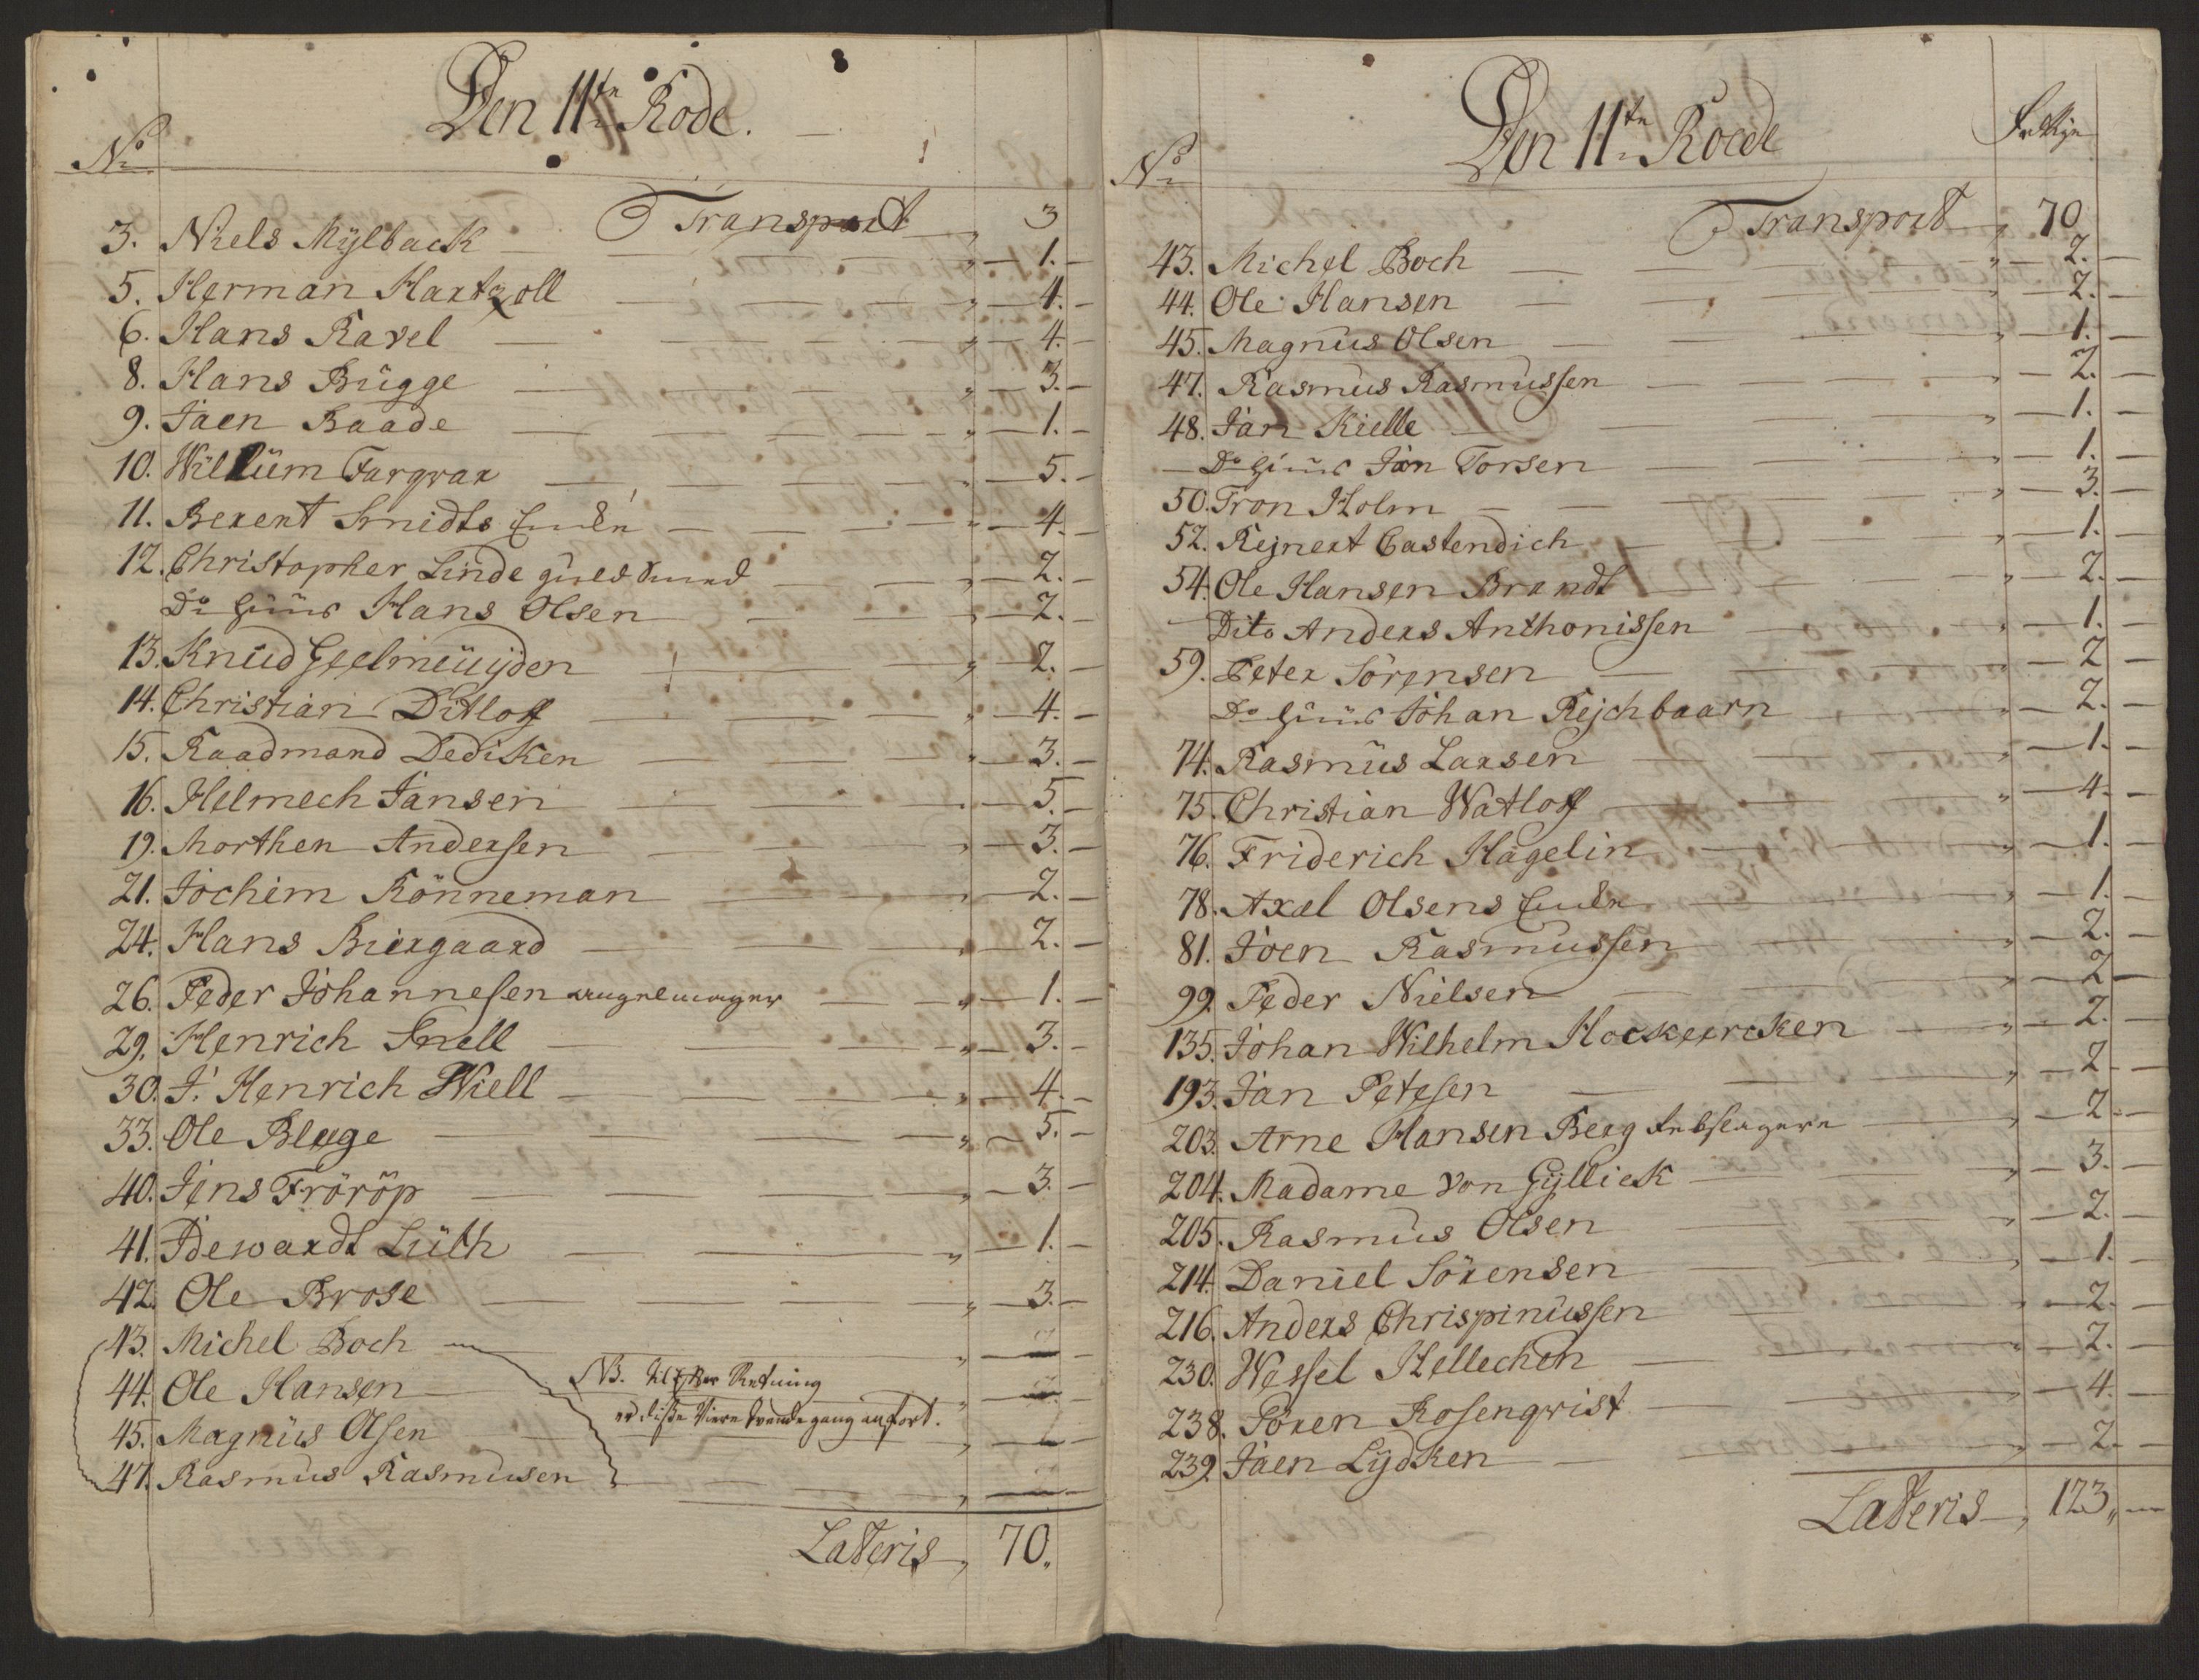 Den 11te Rode.
No
Transport 3
3. Niels Mÿlback 1.
5. Herman Hartzoll 4.
6. Hans Ravel 4.
8. Hans Brügge 3.
9. Jaen Raade 1.
10. Willum Fargrar 5.
11. Berent Smidts Encke 4.
12. Christopher Linde 2.
Do Huus Hans Olsen 2.
13. Knud Geelmeuÿden 2.
14. Christian Ditlof 4.
15. Raadmand Dediken 3.
16. Helmech Jansen 5.
19. Morthen Andersen 3.
21. Jochim Rönneman 2.
24. Hans Biergaard 2.
26. Peder Johannesen 1.
29. Henrich Snell 3.
30. J. Henrich Wiell 4.
33. Ole Blege 5.
40. Jens Fröröp 3.
41. Edewardt Lüth 1.
42. Ole Brose 3.
43. Michel Boch
NB. Retning
44. Ole Hansen
er disse Viere tvende gang anfört.
45. Magnus Olsen
47. Rasmus Rasmusen
Lateris 70.
Den 11te Roede
No
Transport 70
43. Michel Boch 2.
44. Ole Hansen 2.
45. Magnus Olsen 1.
47. Rasmus Rasmussen 2.
48. Jan Kielle 1.
Do Huus Jan Torsen 1.
50. Tron Holm 3.
52. Rejnert Castendich 1.
54. Ole Hansen Brandt 2.
Dito Anders Anthonissen 1.
59. Peter Sörensen 2
Do Huus Johan Rejchbaarn 2.
74. Rasmus Larsen 1.
75. Christian Watlof 4.
76. Friderich Hagelin 1.
78. Axel Olsens Encke 1.
81. Joen Rasmussen 2.
99. Peder Nielsen 2
135. Johan Wilhelm Hockeercken 2.
193. Jan Petesen 2
203. Arne Hansen Berg 2
204. Madame von Gÿllick 3.
205. Rasmus Olsen 2.
214. Daniel Sörensen 1.
216. Anders Chrispinussen 2.
230. Wessel Hellechen 2.
238. Sören Rosenqvist 4.
239. Jaen Lÿdken 2.
Lateris 123